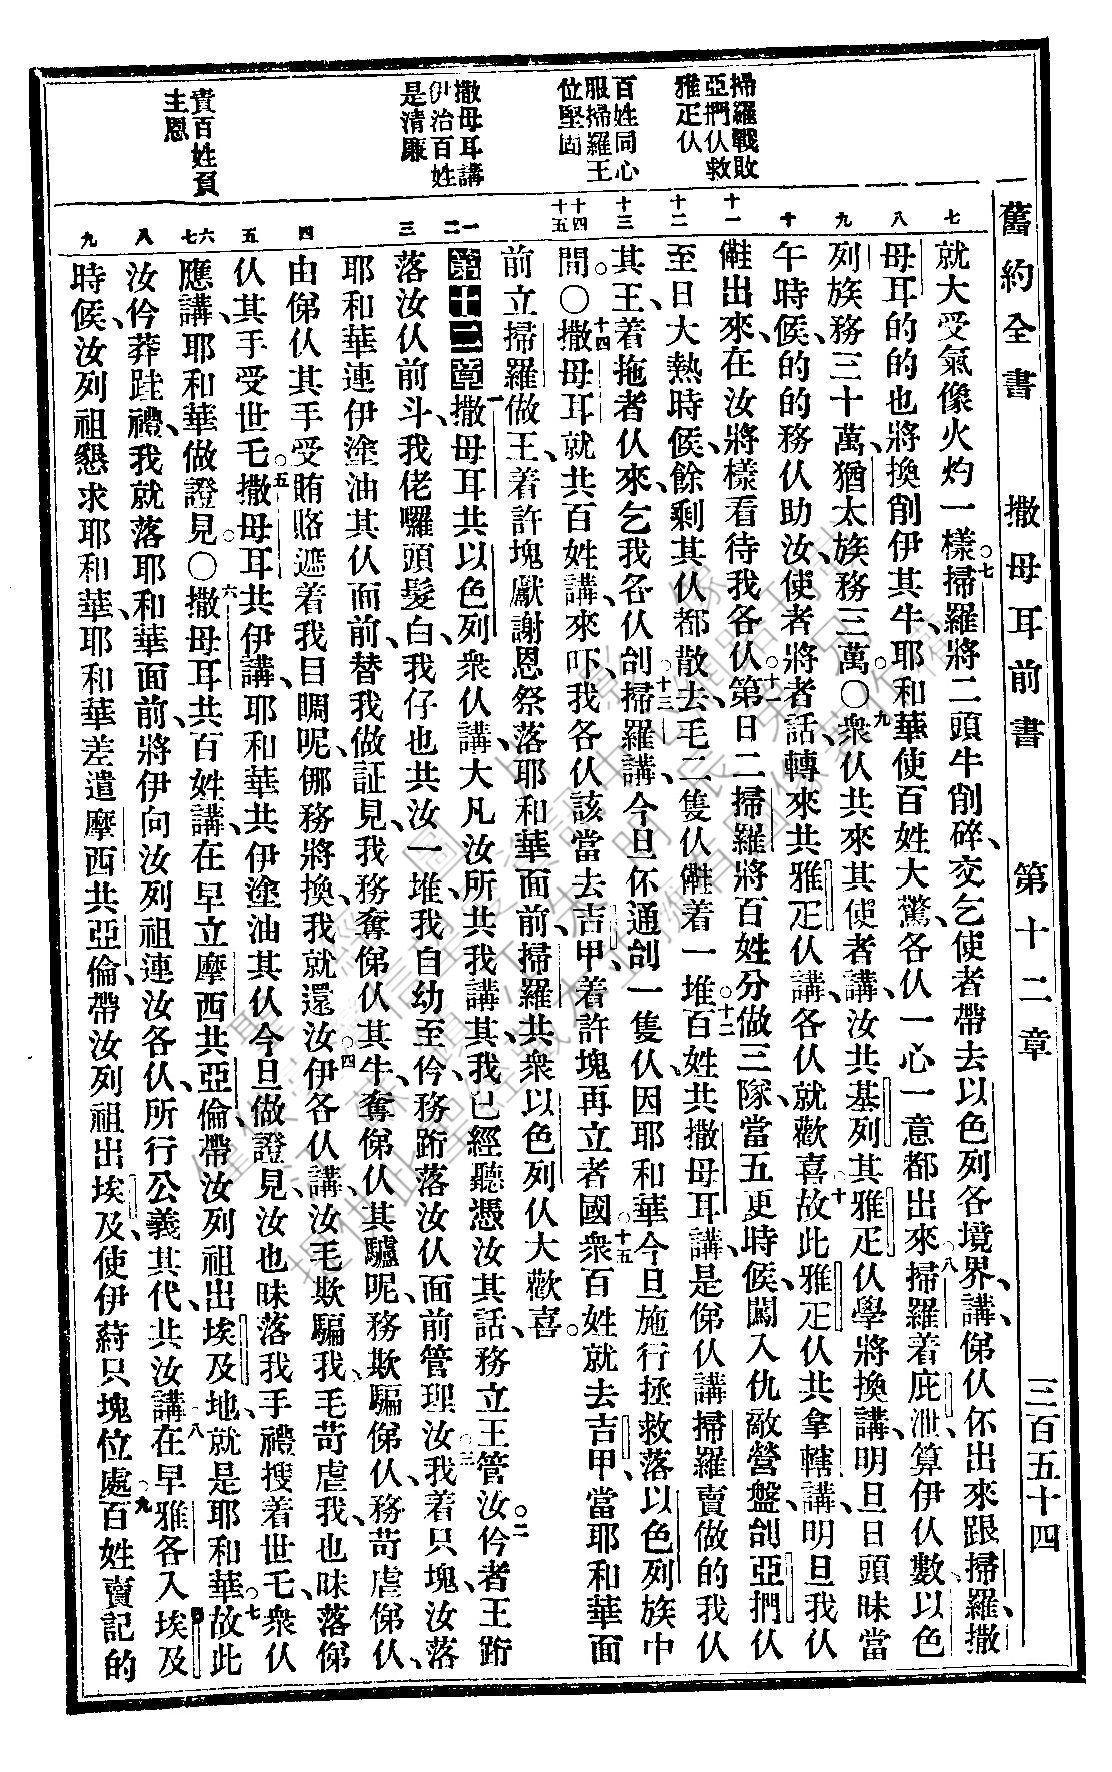 舊約全書 撒母耳前書 第十二章 三百五十四
掃羅戰敗
亞捫仈救
雅疋仈
百姓同心
服掃羅王
位堅固
撒母耳講
伊治百姓
是清廉
責百姓負
主恩
七 八 九 十 十一 十二 十三 十四 十五 一 二 三 四 五 六 七 八 九
就大受氣像火灼一樣。七掃羅將二頭牛削碎、交乞使者帶去以色列各境界、講、俤仈伓出來跟掃羅、撒
母耳的的也將換削伊其牛、耶和華使百姓大驚、各仈一心一意都出來。八掃羅着庇泄、算伊仈數、以色
列族務三十萬、猶太族務三萬。〇九衆仈共來其使者講、汝共基列其雅疋仈學將換講、明旦日頭昧當
午時候、的的務仈助汝、使者將者話轉來共雅疋仈講、各仈就歡喜。十故此雅疋仈共拿轄講、明旦我仈
儺出來、在汝將樣看待我各仈。十一第日二掃羅將百姓分做三隊、當五更時候、闖入仇敵營盤、刣亞捫仈
至日大熱時候、餘剩其仈都散去、毛二隻仈儺着一堆。十二百姓共撒母耳講、是俤仈講掃羅賣做的我仈
其王、着拖者仈來、乞我各仈刣。十三掃羅講、今旦伓通刣一隻仈、因耶和華今旦施行拯救落以色列族中
間。〇十四撒母耳就共百姓講、來吓、我各仈該當去吉甲、着許塊再立者國。十五衆百姓就去吉甲、當耶和華面
前立掃羅做王、着許塊獻謝恩祭落耶和華面前、掃羅共衆以色列仈大歡喜。
第十二章一撒母耳共以色列衆仈講、大凡汝所共我講其、我已經聽憑汝其話、務立王管汝。二仱者王䟓
落汝仈前斗、我佬囉頭髮白、我仔也共汝一堆、我自幼至仱、務䟓落汝仈面前管理汝。三我着只塊、汝落
耶和華連伊塗油其仈面前、替我做証見、我務奪俤仈其牛、奪俤仈其驢呢、務欺騙俤仈、務苛虐俤仈、
由俤仈其手受賄賂遮着我目睭呢、挪務將換、我就還汝。四伊各仈講、汝毛欺騙我、毛苛虐我、也昧落俤
仈其手受世乇。五撒母耳共伊講、耶和華共伊塗油其仈今旦做證見、汝也昧落我手禮搜着世乇、衆仈
應講、耶和華做證見。〇六撒母耳共百姓講、在早立摩西共亞倫、帶汝列祖出埃及地、就是耶和華。七故此
汝仱莽䟓禮、我就落耶和華面前、將伊向汝列祖連汝各仈、所行公義其代、共汝講。八在早雅各入埃及
時候、汝列祖懇求耶和華、耶和華差遣摩西共亞倫、帶汝列祖出埃及、使伊蒔只塊位處。九百姓賣記的